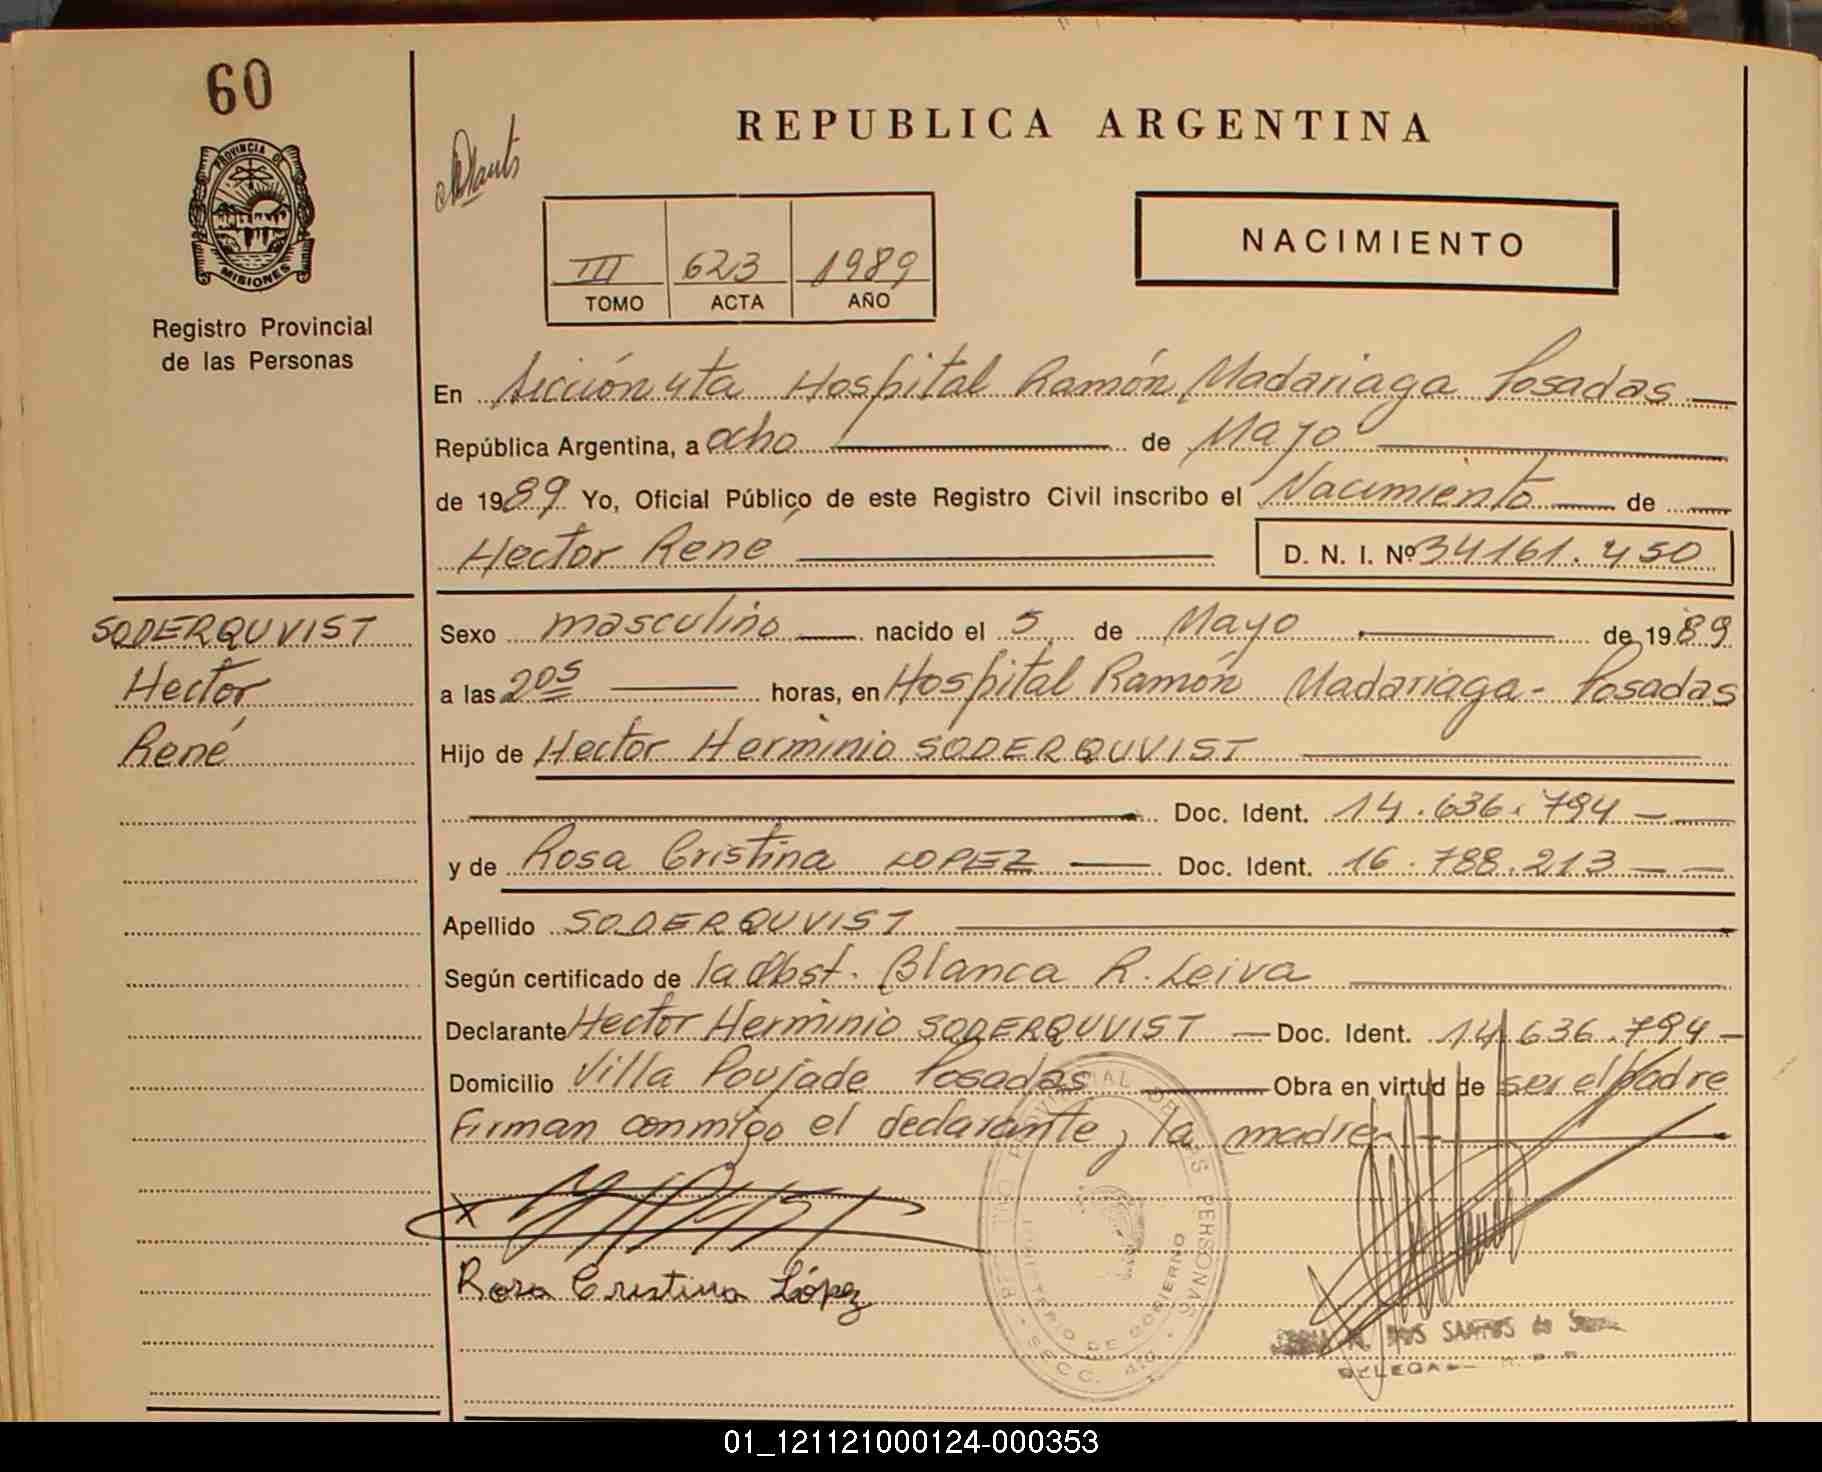 60
REPUBLICA ARGENTINA
PROVINCIA DE
MISIONES
Registro Provincial
de las Personas
III 623 1989
TOMO ACTA AÑO
NACIMIENTO
En Sección 4ta Hospital Ramón Madariaga Posadas
República Argentina, a ocho de Mayo
de 1989 Yo, Oficial Público de este Registro Civil inscribo el Nacimiento de
Hector René D. N. I. Nº 34161.450
SODERQUVIST
Hector
René
Sexo masculino nacido el 5 de Mayo de 1989
a las 2 05 horas, en Hospital Ramón Madariaga - Posadas
Hijo de Hector Herminio SODERQUVIST
Doc. Ident. 14.636.794
y de Rosa Cristina LOPEZ Doc. Ident. 16.788.213
Apellido SODERQUVIST
Según certificado de la Obst. Blanca R. Leiva
Declarante Hector Herminio SODERQUVIST Doc. Ident. 14.636.794
Domicilio Villa Poujade Posadas Obra en virtud de ser el padre
Firman conmigo el declarante, la madre
Rosa Cristina López
REGISTRO PROVINCIAL DE LAS PERSONAS
MINISTERIO DE GOBIERNO
SECC. 4ta.
DOS SANTOS de
01_121121000124-000353